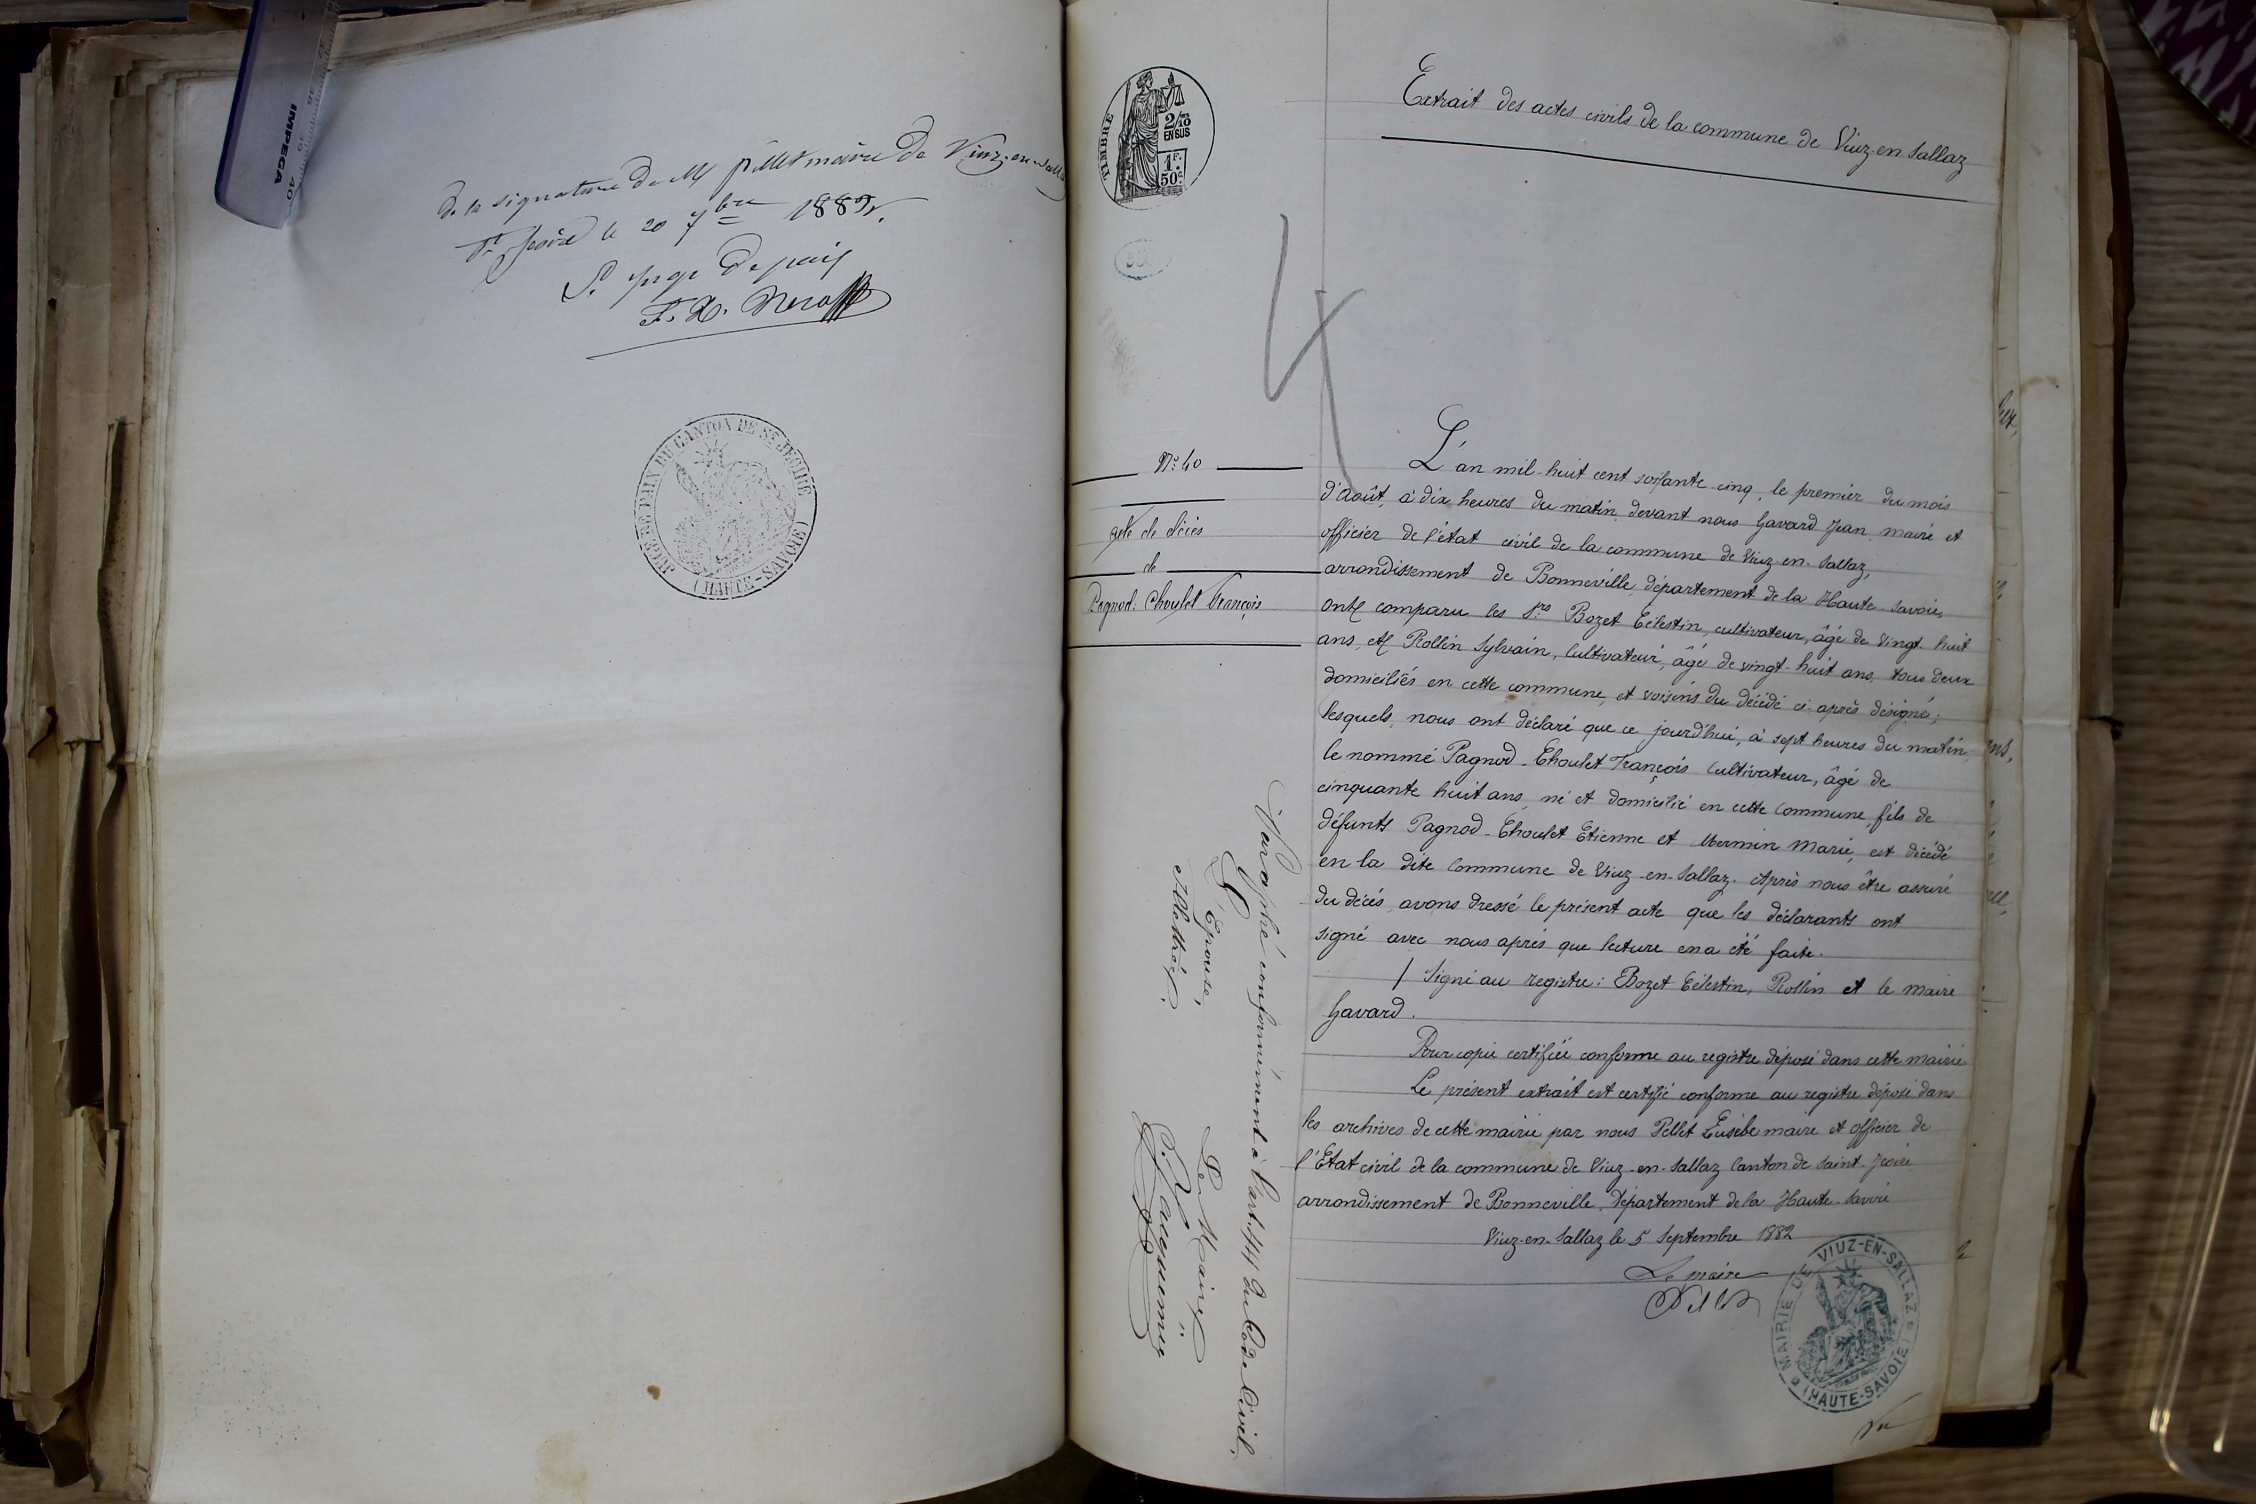 IMPECA
40
de la signature de M Pellet maire de Viuz-en-Sallaz
St Jeoire le 20 7bre 1882.
S. juge de paix
JUGE DE PAIX DU CANTON DE ST JEOIRE
(HAUTE-SAVOIE)
TIMBRE
2/10
EN SUS
1F.
50c.
Extrait des actes civils de la commune de Viuz-en-Sallaz
N° 40
acte de décès
de
Pagnod-Choulet François
L'an mil-huit cent soixante-cinq, le premier du mois
d'Août, à dix heures du matin, devant nous Gavard Jean, maire et
officier de l'état civil de la commune de Viuz-en-Sallaz,
arrondissement de Bonneville, département de la Haute-Savoie,
ont comparu les Srs Bozet Célestin, cultivateur, âgé de vingt-huit
ans, et Rollin Sylvain, cultivateur, âgé de vingt-huit ans, tous deux
domiciliés en cette commune, et voisins du décédé ci-après désigné;
lesquels nous ont déclaré que ce jourd'hui, à sept heures du matin,
le nommé Pagnod-Choulet François cultivateur, âgé de
cinquante huit ans, né et domicilié en cette commune, fils de
défunts Pagnod-Choulet Etienne et Mermin Marie, est décédé
en la dite commune de Viuz-en-Sallaz. Après nous être assuré
du décès, avons dressé le présent acte que les déclarants ont
signé avec nous après que lecture en a été faite.
/ Signé au registre: Bozet Célestin, Rollin et le maire
Gavard.
Pour copie certifiée conforme au registre déposé dans cette mairie
Le présent extrait est certifié conforme au registre déposé dans
les archives de cette mairie par nous Pellet Eusèbe maire et officier de
l'Etat civil de la commune de Viuz-en-Sallaz canton de Saint-Jeoire
arrondissement de Bonneville, département de la Haute-Savoie
Viuz-en-Sallaz le 5 Septembre 1882
Le maire
Pellet
MAIRIE DE VIUZ-EN-SALLAZ
(HAUTE-SAVOIE)
Vu
Paraphé conformément à l'art. 44 du Code Civil,
Epouse,
Le Maire,
C. Jacquemin